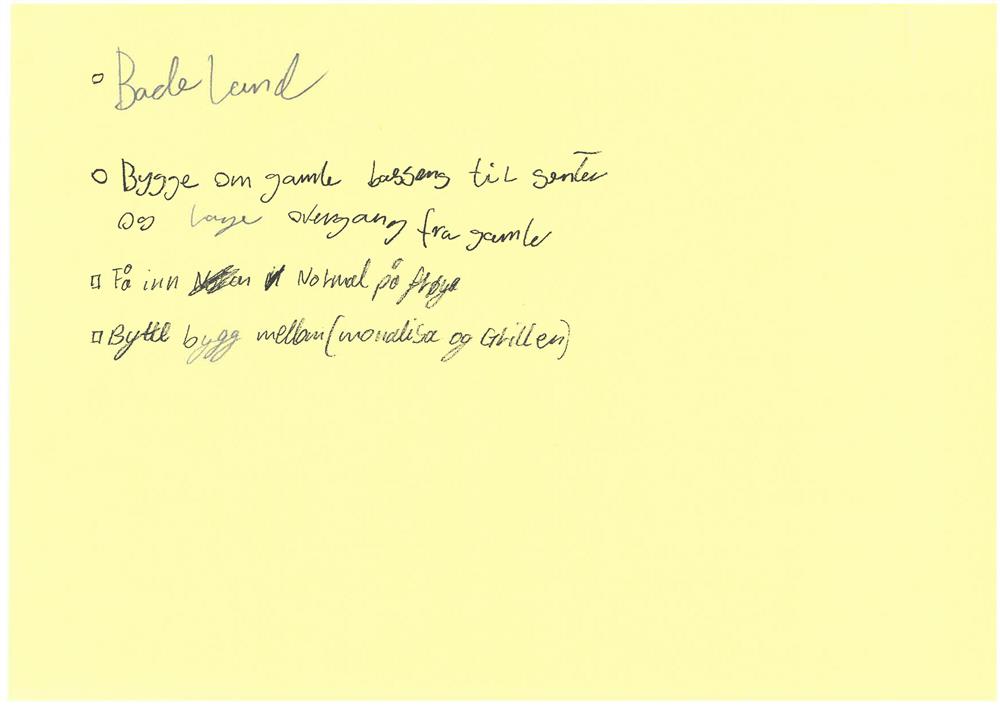 Badeland
Bygge om gamle basseng til senter
og lage overgang fra gamle
Få inn Normal på frøya
Bytte bygg mellom (monalisa og Grillen)